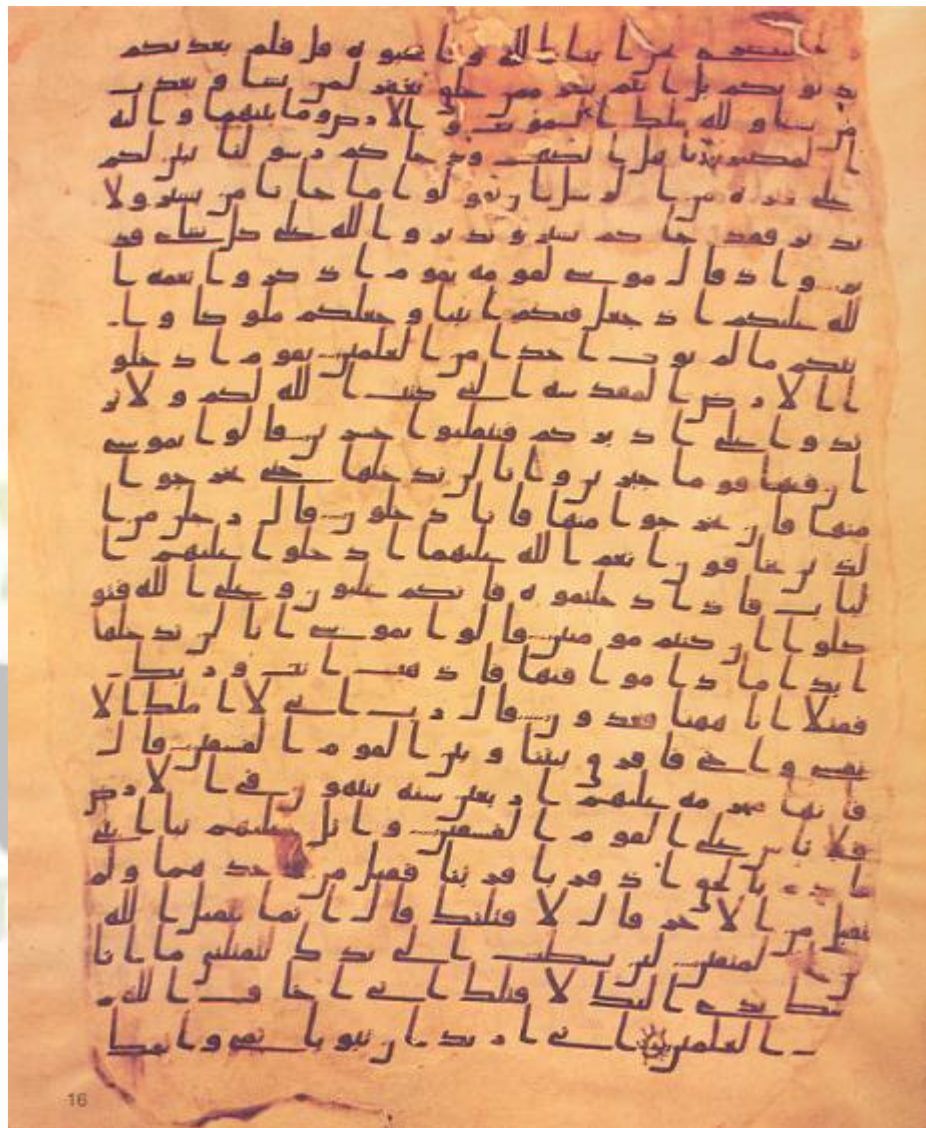 النصرى نحن ابنا الله واحبوه قل فلم يعذبكم
بذنوبكم بل انتم بشر ممن خلق يغفر لمن يشا ويعذب
من يشا ولله ملك السموت والارض وما بينهما واليه
المصير ياهل الكتب قد جاكم رسولنا يبين لكم
على فترة من الرسل ان تقولوا ما جانا من بشير ولا
نذير فقد جاكم بشير ونذير والله على كل شاى قد
ير واذ قال موسى لقومه يقوم اذكروا نعمه ا
لله عليكم اذ جعل فيكم انبيا وجعلكم ملوكا وا
تيكم ما لم يوت احدا من العلمين يقوم ادخلو
ا الارض المقدسه التى كتب الله لكم ولا تر
تدوا على ادبركم فتنقلبوا خسرين قالوا يموسى
ان فيها قوما جبرين وانا لن ندخلها حتى يخرجوا
منها فان يخرجوا منها فانا دخلون قال رجلن من ا
لذين يخافون انعم الله عليهما ادخلوا عليهم ا
لباب فاذا دخلتموه فانكم غلبون وعلى الله فتو
كلوا ان كنتم مومنين قالوا يموسى انا لن ندخلها
ابدا ما داموا فيها فاذهب انت وربك
فقتلا انا ههنا قعدون قال رب انى لا املك الا
نفسى واخى فافرق بيننا وبين القوم الفسقين قال
فانها محرمه عليهم اربعين سنه يتيهون فى الارض
فلا تاس على القوم الفسقين واتل عليهم نبا ابنى
ادم بالحق اذ قربا قربنا فتقبل من احدهما ولم
يتقبل من الاخر قال لاقتلنك قال انما يتقبل الله
من المتقين لين بسطت الى يدك لتقتلنى ما انا
ببسط يدى اليك لاقتلك انى اخاف الله
رب العلمين انى اريد ان تبوا باثمى واثمك
16